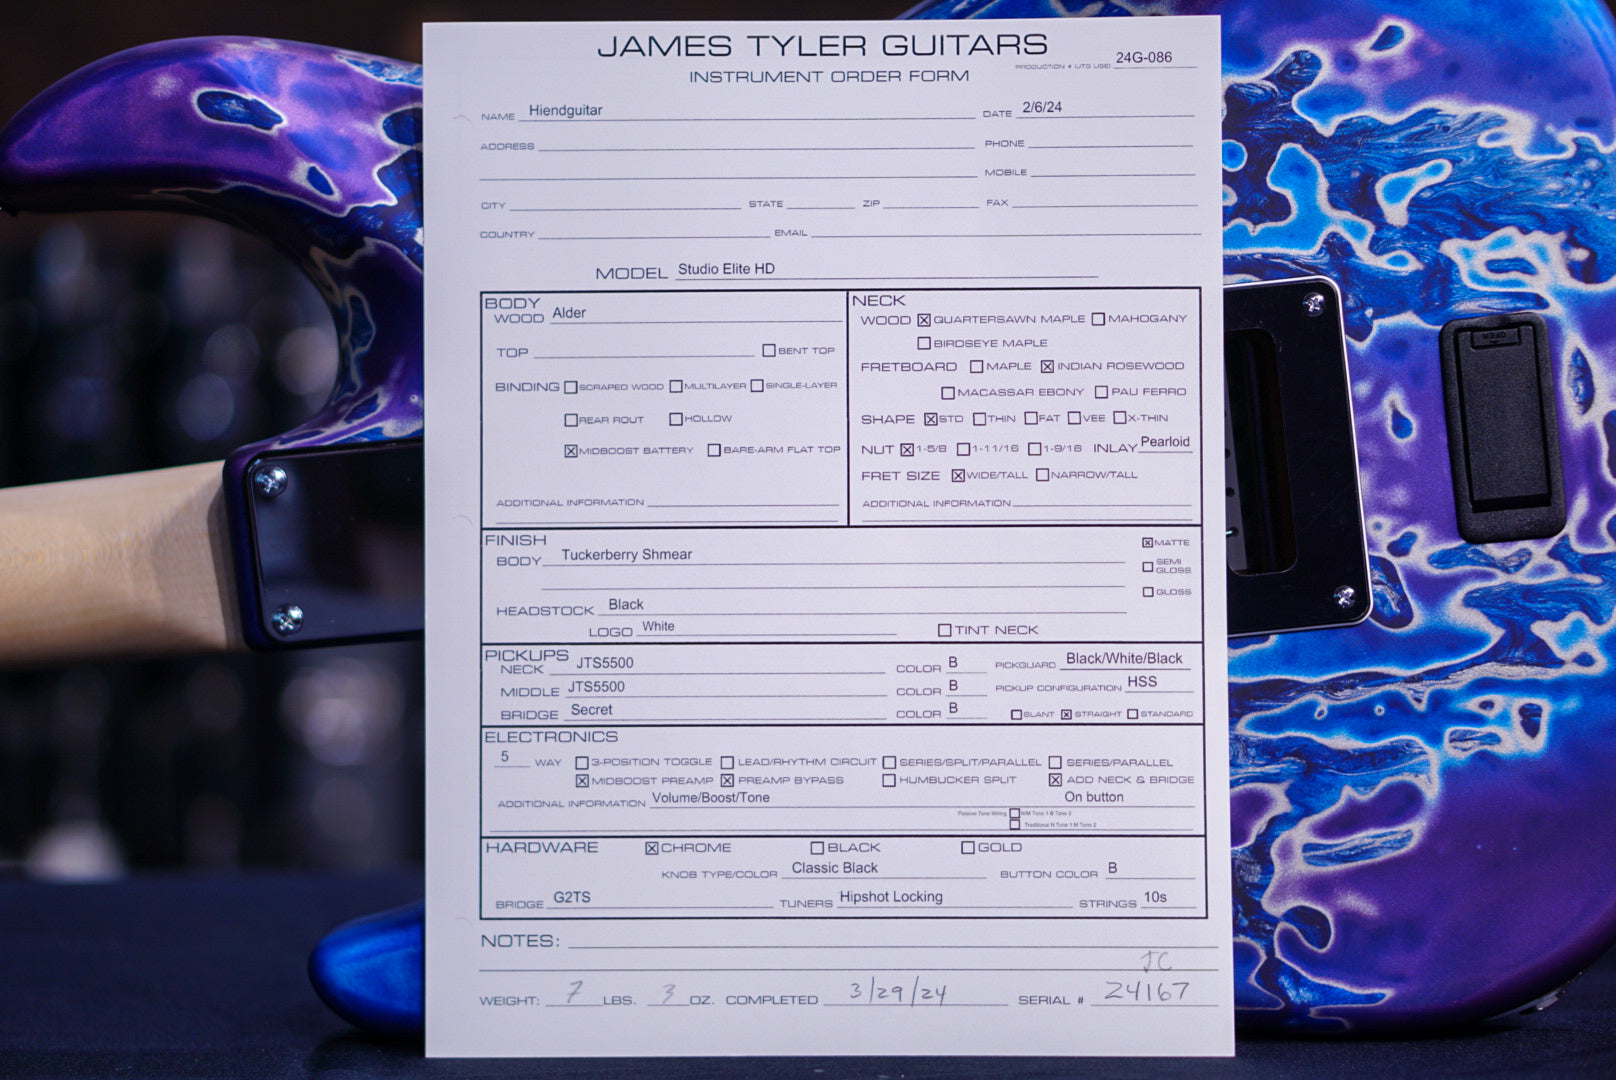 JAMES TYLER GUITARS
INSTRUMENT ORDER FORM PRODUCTION # UTG USE! 24G-086
NAME Hiendguitar DATE 2/6/24
ADDRESS PHONE
MOBILE
CITY STATE ZIP FAX
COUNTRY EMAIL
MODEL Studio Elite HD
BODY
WOOD Alder
TOP ☐ BENT TOP
BINDING ☐ SCRAPED WOOD ☐ MULTILAYER ☐ SINGLE-LAYER
☐ REAR ROUT ☐ HOLLOW
☒ MIDBOOST BATTERY ☐ BARE-ARM FLAT TOP
ADDITIONAL INFORMATION
NECK
WOOD ☒ QUARTERSAWN MAPLE ☐ MAHOGANY
☐ BIRDSEYE MAPLE
FRETBOARD ☐ MAPLE ☒ INDIAN ROSEWOOD
☐ MACASSAR EBONY ☐ PAU FERRO
SHAPE ☒ STD ☐ THIN ☐ FAT ☐ VEE ☐ X-THIN
NUT ☒ 1-5/8 ☐ 1-11/16 ☐ 1-9/16 INLAY Pearloid
FRET SIZE ☒ WIDE/TALL ☐ NARROW/TALL
ADDITIONAL INFORMATION
FINISH
BODY Tuckerberry Shmear
☒ MATTE
☐ SEMI GLOSS
☐ GLOSS
HEADSTOCK Black
LOGO White ☐ TINT NECK
PICKUPS
NECK JTS5500 COLOR B PICKGUARD Black/White/Black
MIDDLE JTS5500 COLOR B PICKUP CONFIGURATION HSS
BRIDGE Secret COLOR B ☐ SLANT ☒ STRAIGHT ☐ STANDARD
ELECTRONICS
5 WAY ☐ 3-POSITION TOGGLE ☐ LEAD/RHYTHM CIRCUIT ☐ SERIES/SPLIT/PARALLEL ☐ SERIES/PARALLEL
☒ MIDBOOST PREAMP ☒ PREAMP BYPASS ☐ HUMBUCKER SPLIT ☒ ADD NECK & BRIDGE
ADDITIONAL INFORMATION Volume/Boost/Tone On button
Passive Tone Wiring ☐ N/M Tone 1 B Tone 2
☐ Traditional N Tone 1 M Tone 2
HARDWARE ☒ CHROME ☐ BLACK ☐ GOLD
KNOB TYPE/COLOR Classic Black BUTTON COLOR B
BRIDGE G2TS TUNERS Hipshot Locking STRINGS 10s
NOTES:
JC
WEIGHT: 7 LBS. 3 OZ. COMPLETED 3/29/24 SERIAL # 24167
OPEN